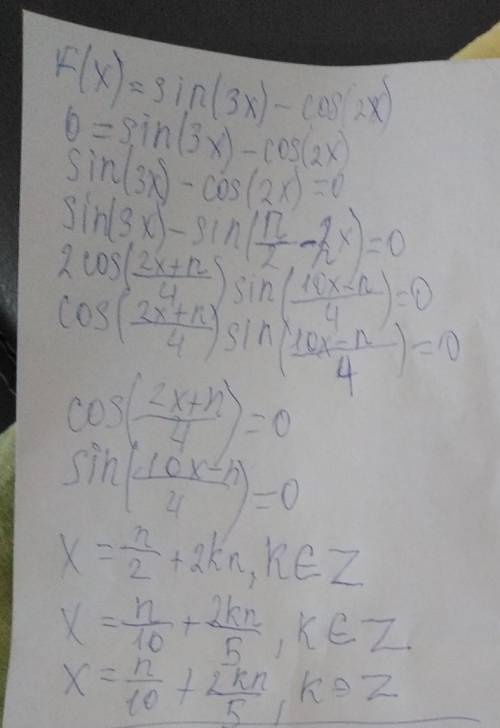 F(x) = sin(3x) - cos(2x)
0 = sin(3x) - cos(2x)
sin(3x) - cos(2x) = 0
sin(3x) - sin(п/2 - 2x) = 0
2cos((2x+п)/4) sin((10x-п)/4) = 0
cos((2x+п)/4) sin((10x-п)/4) = 0
cos((2x+п)/4) = 0
sin((10x-п)/4) = 0
x = п/2 + 2kп, k∈Z
x = п/10 + 2kп/5, k∈Z
x = п/10 + 2kп/5, k∋Z